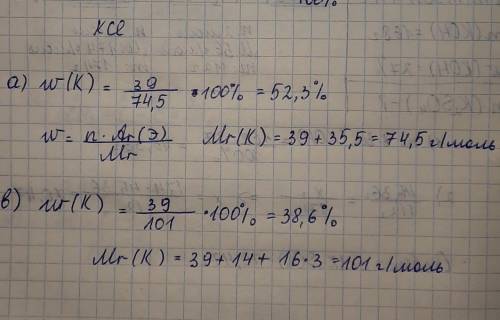 KCl
а) w(K) = 39/74,5 • 100% = 52,3%
w = n · Ar(Э)/Mr   Mr(K) = 39 + 35,5 = 74,5 г/моль
в) w(K) = 39/101 · 100% = 38,6%
Mr(K) = 39 + 14 + 16 · 3 = 101 г/моль